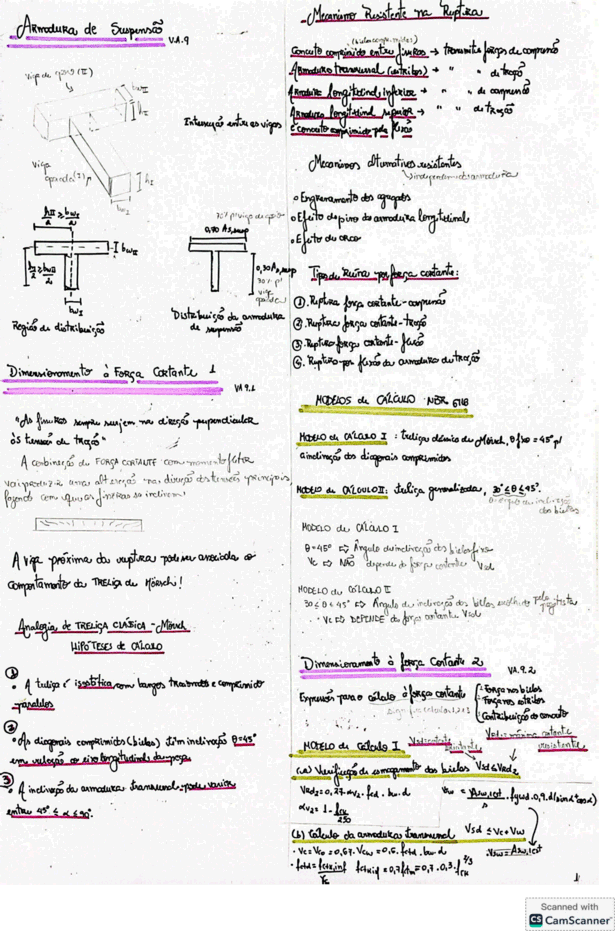 Armadura de Suspensão
V.A.9
viga de apoio (II)
bwII
hII
Intersecção entre as vigas
viga
apoiada (I)
hI
bwI
hII/2 ≥ bwI/2
bwII
hI/2 ≥ bwII/2
bwI
Região de distribuição
70% p/ viga de apoio
0,70 As,susp
0,30 As,susp
30% p/
viga
apoiada
Distribuição da armadura
de suspensão
Dimensionamento à Força Cortante 1
V.A 9.1
"As fissuras sempre surjem na direção perpendicular
às tensões de tração"
A combinação de FORÇA CORTANTE com momento fletor
vai produzir uma alteração na direção das tensões principais,
fazendo com que as fissuras se inclinem
A viga próxima da ruptura pode ser associada ao
comportamento da TRELIÇA de Mörsch!
Analogia de TRELIÇA CLÁSSICA - Mörsch
HIPÓTESES de CÁLCULO
①
• A treliça é isostática com banzos tracionado e comprimido
paralelos
②
• As diagonais comprimidas (bielas) têm inclinação θ=45°
em relação ao eixo longitudinal da peça
③ • A inclinação da armadura transversal pode variar
entre 45° ≤ α ≤ 90°.
Mecanismo Resistente na Ruptura
Concreto comprimido entre fissuras → transmite forças de compressão
Armadura transversal (estribos) → " " de tração
Armadura longitudinal inferior → " " de compressão
Armadura longitudinal superior → " " de tração
e concreto comprimido pela flexão
Mecanismos alternativos resistentes
↳ independem da armadura
• Engrenamento dos agregados
• Efeito de pino da armadura longitudinal
• Efeito de arco
Tipos de Ruína por força cortante:
①. Ruptura força cortante-compressão
②. Ruptura força cortante-tração
③. Ruptura força cortante-flexão
④. Ruptura por flexão da armadura de tração
MODELOS de CÁLCULO NBR 6118
MODELO de CÁLCULO I : treliça clássica de Mörsch, θ fixo = 45° p/
a inclinação das diagonais comprimidas
MODELO de CÁLCULO II: treliça generalizada, 30° ≤ θ ≤ 45°.
θ = ângulo de inclinação
das bielas
MODELO de CÁLCULO I
θ = 45° ⇨ Ângulo de inclinação das bielas fixo
Vc ⇨ NÃO depende da força cortante Vsd
MODELO de CÁLCULO II
30 ≤ θ ≤ 45° ⇨ Ângulo de inclinação das bielas escolhido pelo projetista
• Vc ⇨ DEPENDE da força cortante Vsd
Dimensionamento à força Cortante 2
V.A. 9.2
Expressões para o cálculo à força cortante
Força nas bielas
Força nos estribos
Contribuição do concreto
MODELO de CÁLCULO I
Vsd: cortante
Vrd2: máxima cortante
resistente
(a) Verificação do esmagamento das bielas Vsd ≤ Vrd2
Vrd2 = 0,27.αv2.fcd.bw.d
αv2 = 1 - fck/250
Vsw = Asw,1cst/s . fywd.0,9.d(sinα+cosα)
(b) Cálculo da armadura transversal Vsd ≤ Vc + Vsw
• Vc = Vco = 0,6.fctd.bw.d
• fctd = fctk,inf/γc fctk,inf = 0,7fctm = 0,7.0,3.fck^2/3
1
Scanned with
CS CamScanner